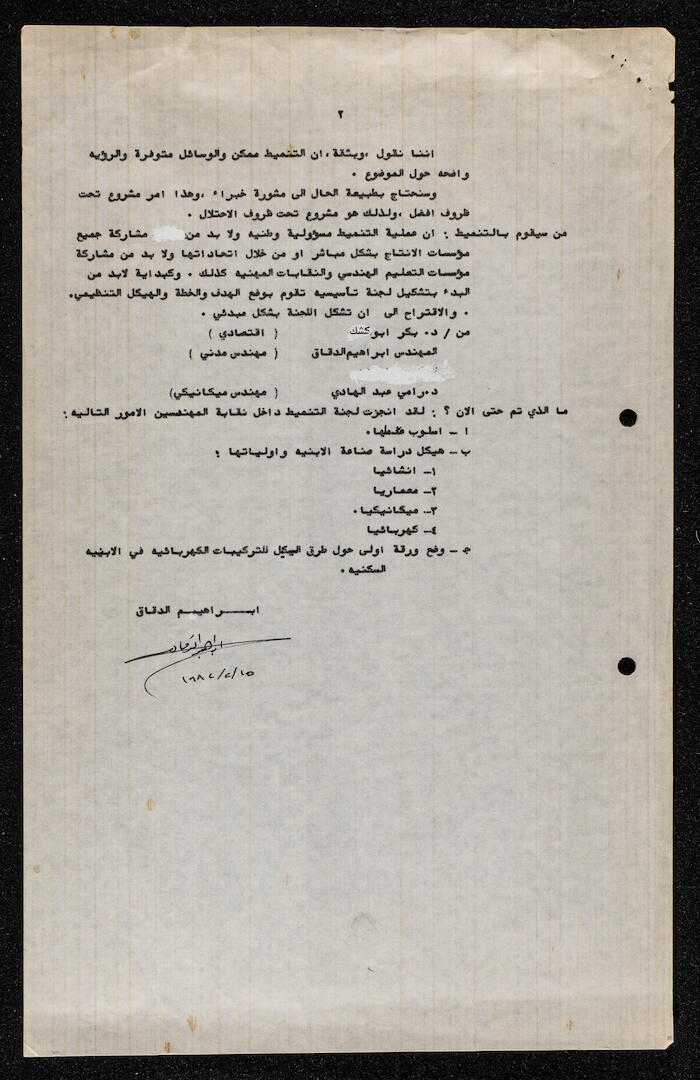 ٢
اننا نقول ،وبثقة ،ان التنميط ممكن والوسائل متوفرة والرؤيه
واضحه حول الموضوع .
وسنحتاج بطبيعة الحال الى مشورة خبراء ،وهذا امر مشروع تحت
ظروف افضل ،ولذلك هو مشروع تحت ظروف الاحتلال .
من سيقوم بالتنميط : ان عملية التنميط مسؤولية وطنيه ولا بد من مشاركة جميع
مؤسسات الانتاج بشكل مباشر او من خلال اتحاداتها ولا بد من مشاركة
مؤسسات التعليم الهندسي والنقابات المهنيه كذلك . وكبداية لابد من
البدء بتشكيل لجنة تأسيسيه تقوم بوضع الهدف والخطة والهيكل التنظيمي.
. والاقتراح الى ان تشكل اللجنة بشكل مبدئي .
من / د. بكر ابوكشك ( اقتصادي )
المهندس ابراهيم الدقاق ( مهندس مدني )
د.رامي عبد الهادي ( مهندس ميكانيكي)
ما الذي تم حتى الان ؟ : لقد انجزت لجنة التنميط داخل نقابة المهندسين الامور التاليه :
ا – اسلوب عملها.
ب – هيكل دراسة صناعة الابنيه واولياتها :
١– انشائيا
٢– معماريا
٣– ميكانيكيا.
٤– كهربائيا
ج – وضع ورقة اولى حول طرق للتركيبات الكهربائيه في الابنيه
السكنيه .
ابــراهيــم الدقاق
ابراهيم الدقاق
١٩٨٢/٢/١٥